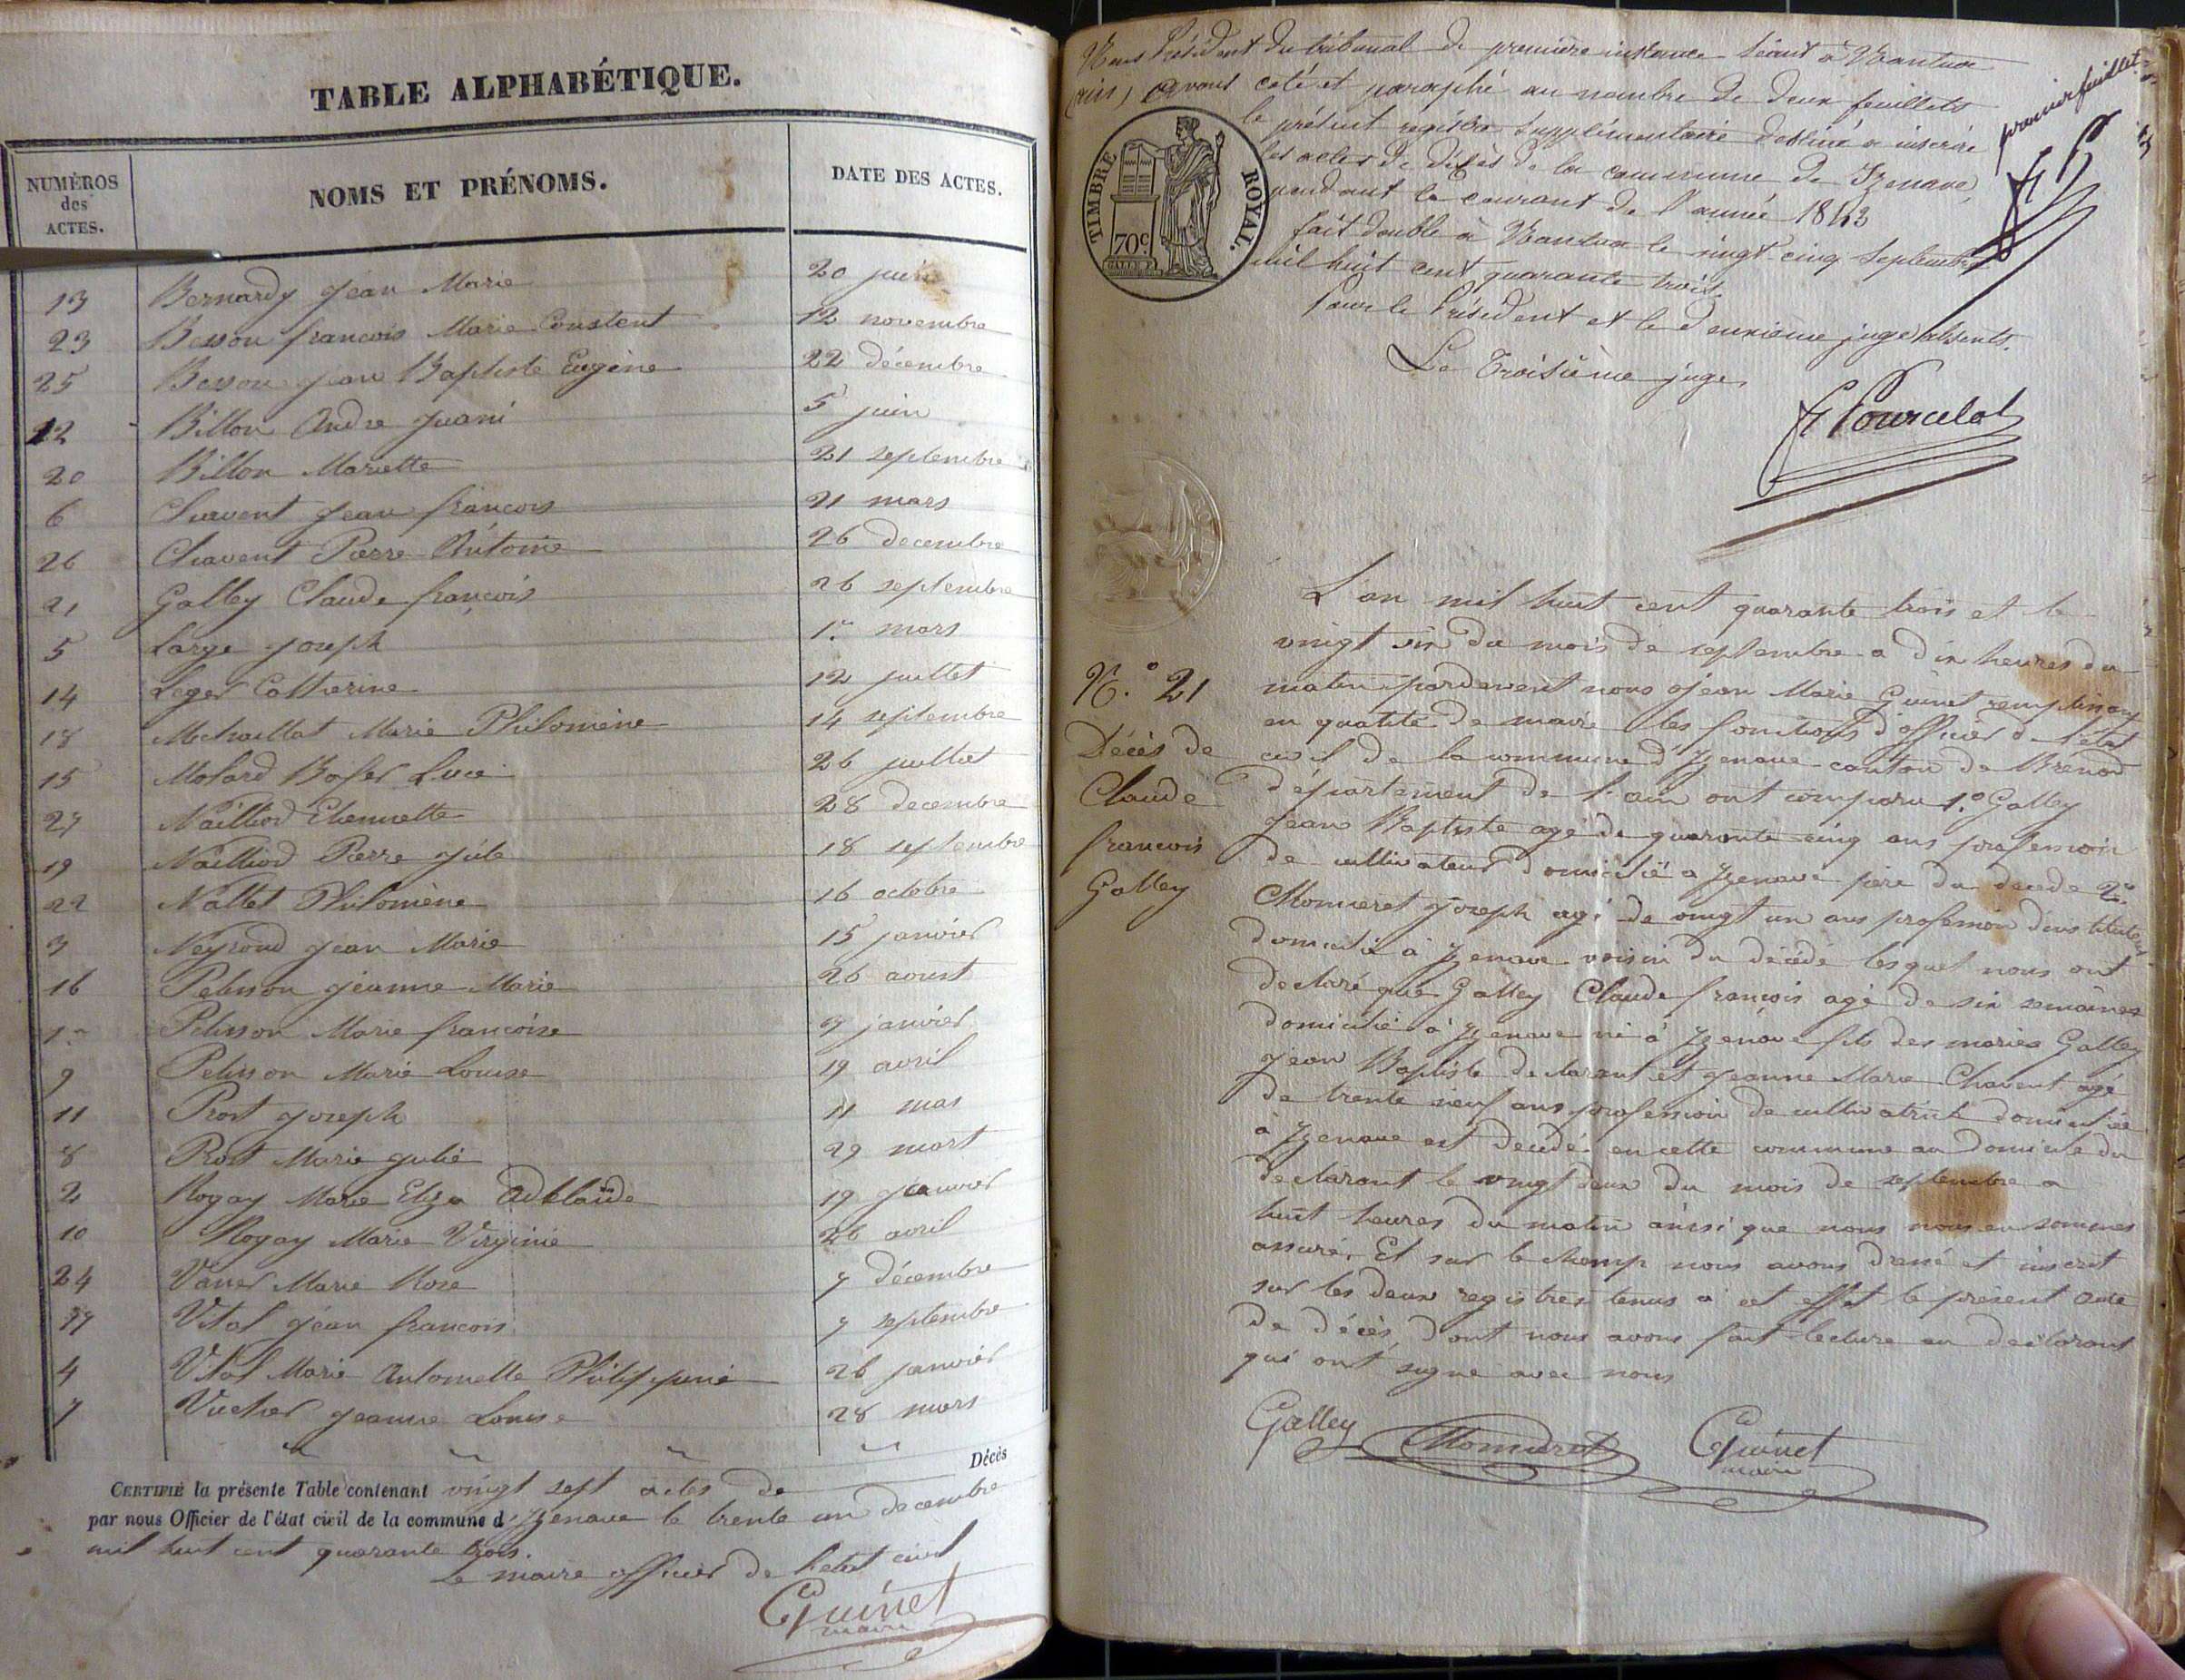 TABLE ALPHABÉTIQUE.
NUMÉROS
des
ACTES.
NOMS ET PRÉNOMS.
DATE DES ACTES.
13 Bernardy jean Marie 20 juin
23 Besson francois Marie Constent 12 novembre
25 Besson jean Baptiste Eugène 22 décembre
12 Billon Andre juani 5 juin
20 Billon Mariette 21 septembre
6 Chavent jean francois 21 mars
26 Chavent Pierre Antoine 26 decembre
21 Galley Claude francois 26 septembre
5 Large joseph 1er mars
14 Leger Catherine 12 juillet
18 Michaillat Marie Philomène 14 septembre
15 Molard Luce 26 juillet
27 Nailliod Etiennette 28 decembre
19 Nailliod Pierre jule 18 septembre
22 Nallet Philomène 16 octobre
3 Neyroud jean Marie 15 janvier
16 Pelisson jeanne Marie 26 aoust
1er Pelisson Marie francoise 9 janvier
9 Pelisson Marie Louise 19 avril
11 Prost joseph 11 mai
8 Prost Marie julie 29 mars
2 Rogay Marie Eliza Adelaide 19 janvier
10 Rogay Marie Virginie 26 avril
24 Marie Rose 7 décembre
17 Vital jean francois 7 septembre
4 Vital Marie Antoinette Philippine 26 janvier
7 Vucher jeanne Louise 28 mars
CERTIFIÉ la présente Table contenant vingt sept actes de Décès
par nous Officier de l'état civil de la commune d'Izenave le trente un decembre
mil huit cent quarante trois.
Le maire officier de l'etat civil
Guinet
maire
Nous Président du tribunal de première instance séant à Nantua
(ain) avons coté et paraphé au nombre de deux feuillets
le présent registre supplémentaire destiné à inscrire
les actes de décès de la commune de Izenave
pendant le courant de l'année 1843
fait double à Nantua le vingt-cinq Septembre
mil huit cent quarante trois.
Pour le Président et le deuxième juge absents.
Le Troisième juge
premier feuillet
TIMBRE ROYAL.
70c.
L'an mil huit cent quarante trois et le
vingt six du mois de septembre a dix heures du
matin pardevant nous jean Marie Guinet remplissant
en qualité de maire les fonctions d'officier de l'état
civil de la commune d'Izenave canton de Brénod
département de l'ain ont comparu 1.o Galley
jean Baptiste agé de quarante cinq ans profession
de cultivateur domicilié a Izenave père du decede 2.o
Monneret joseph agé de vingt un ans profession d'instituteur
domicilié à Izenave voisin du décédé lesquel nous ont
declaré que Galley Claude francois agé de six semaines
domicilié à Izenave né à Izenave fils des mariés Galley
jean Baptiste declarant et jeanne Marie Chavent agé
de trente neuf ans profession de cultivatrice domiciliée
à Izenave est decédé en cette commune au domicile du
declarant le vingt deux du mois de septembre a
huit heures du matin ainsi que nous nous en sommes
assuré. Et sur le champ nous avons dressé et inscrit
sur les deux registres tenus à cet effet le présent acte
de décès dont nous avons fait lecture au declarant
qui ont signé avec nous
N.o 21
Décès de
Claude
francois
Galley
Galley Monneret Guinet
maire